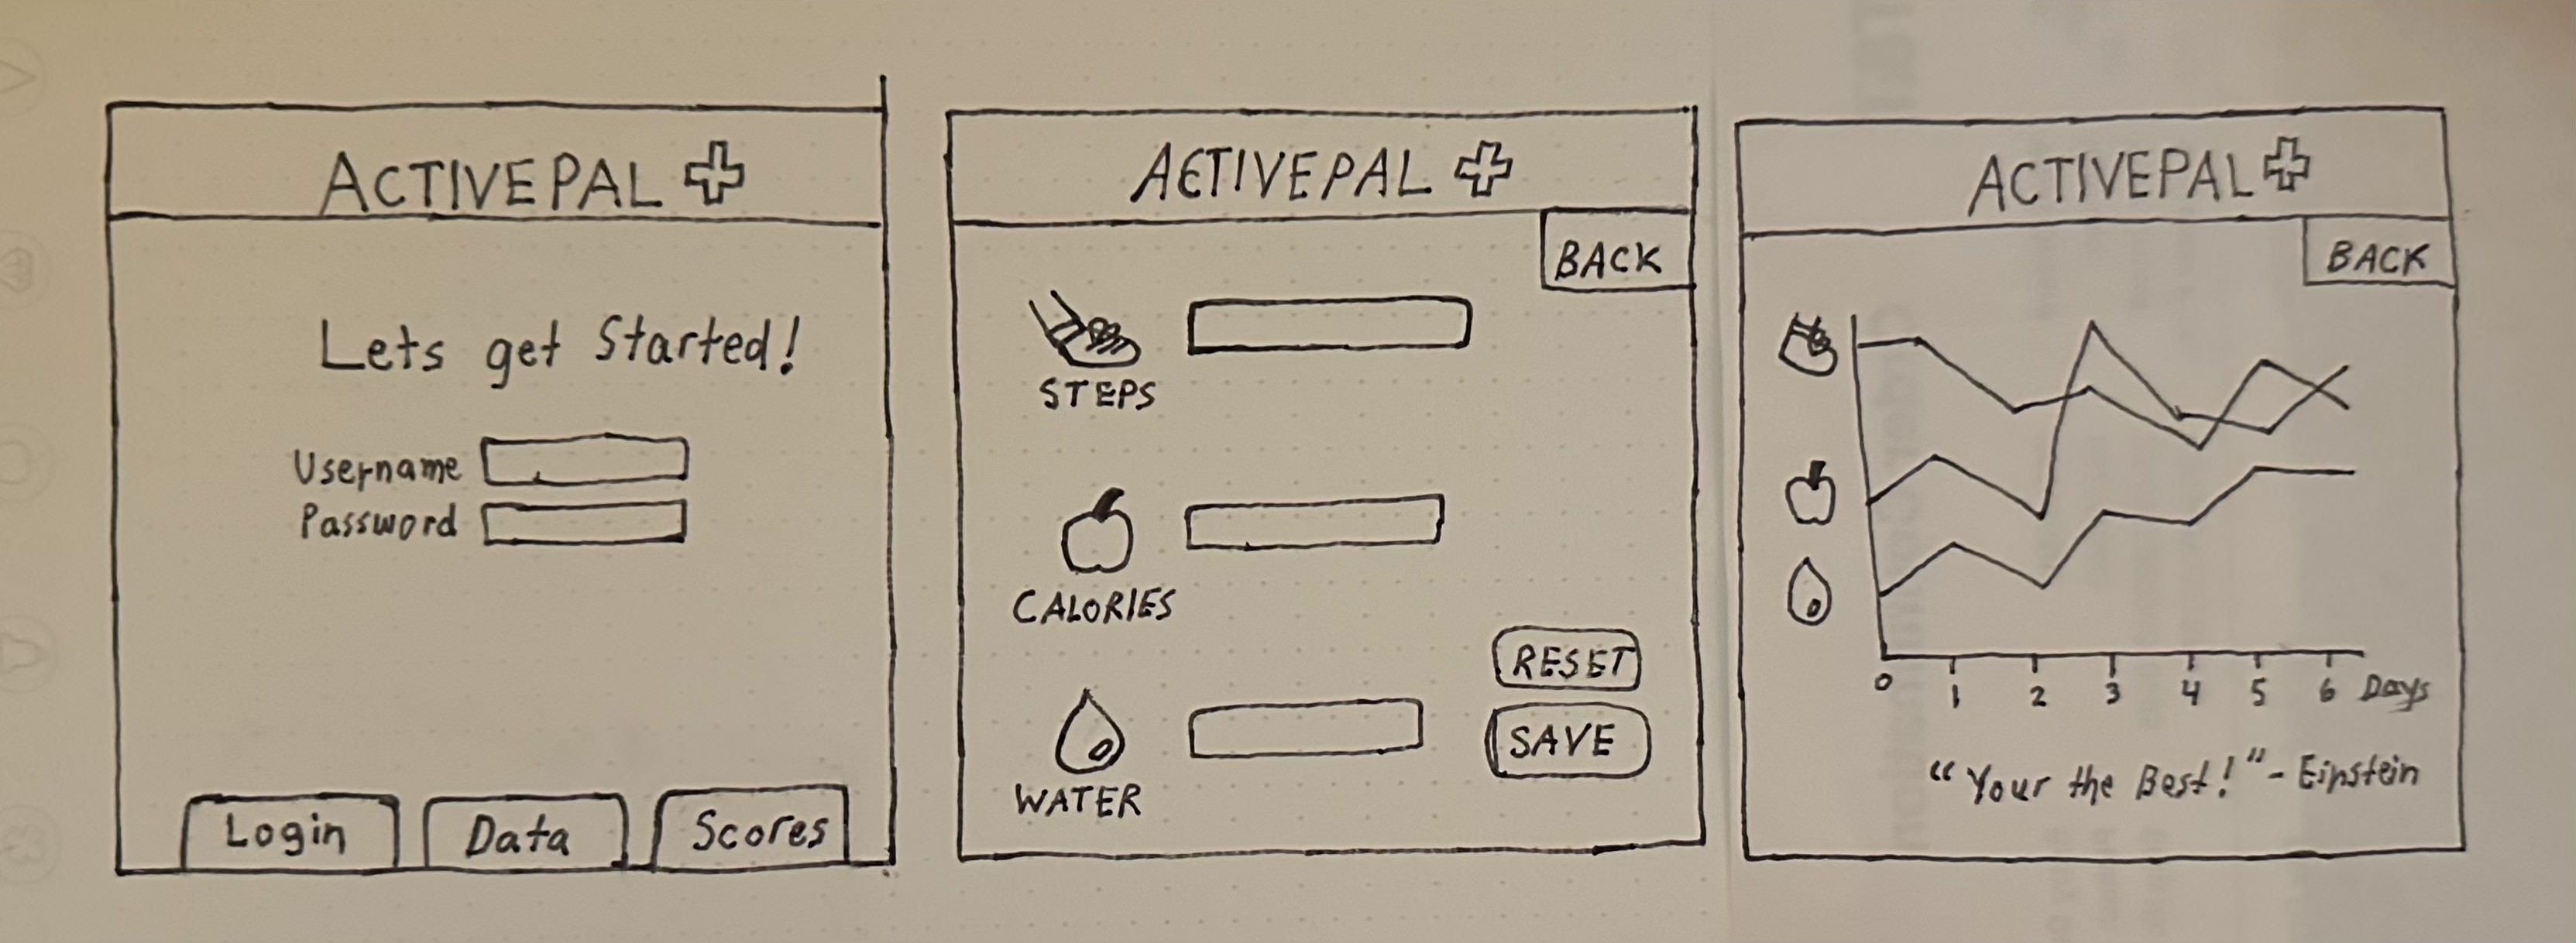 ACTIVEPAL
Lets get Started!
Username
Password
Login
Data
Scores
ACTIVEPAL
BACK
STEPS
CALORIES
RESET
SAVE
WATER
ACTIVEPAL
BACK
0 1 2 3 4 5 6 Days
"Your the Best!" - Einstein